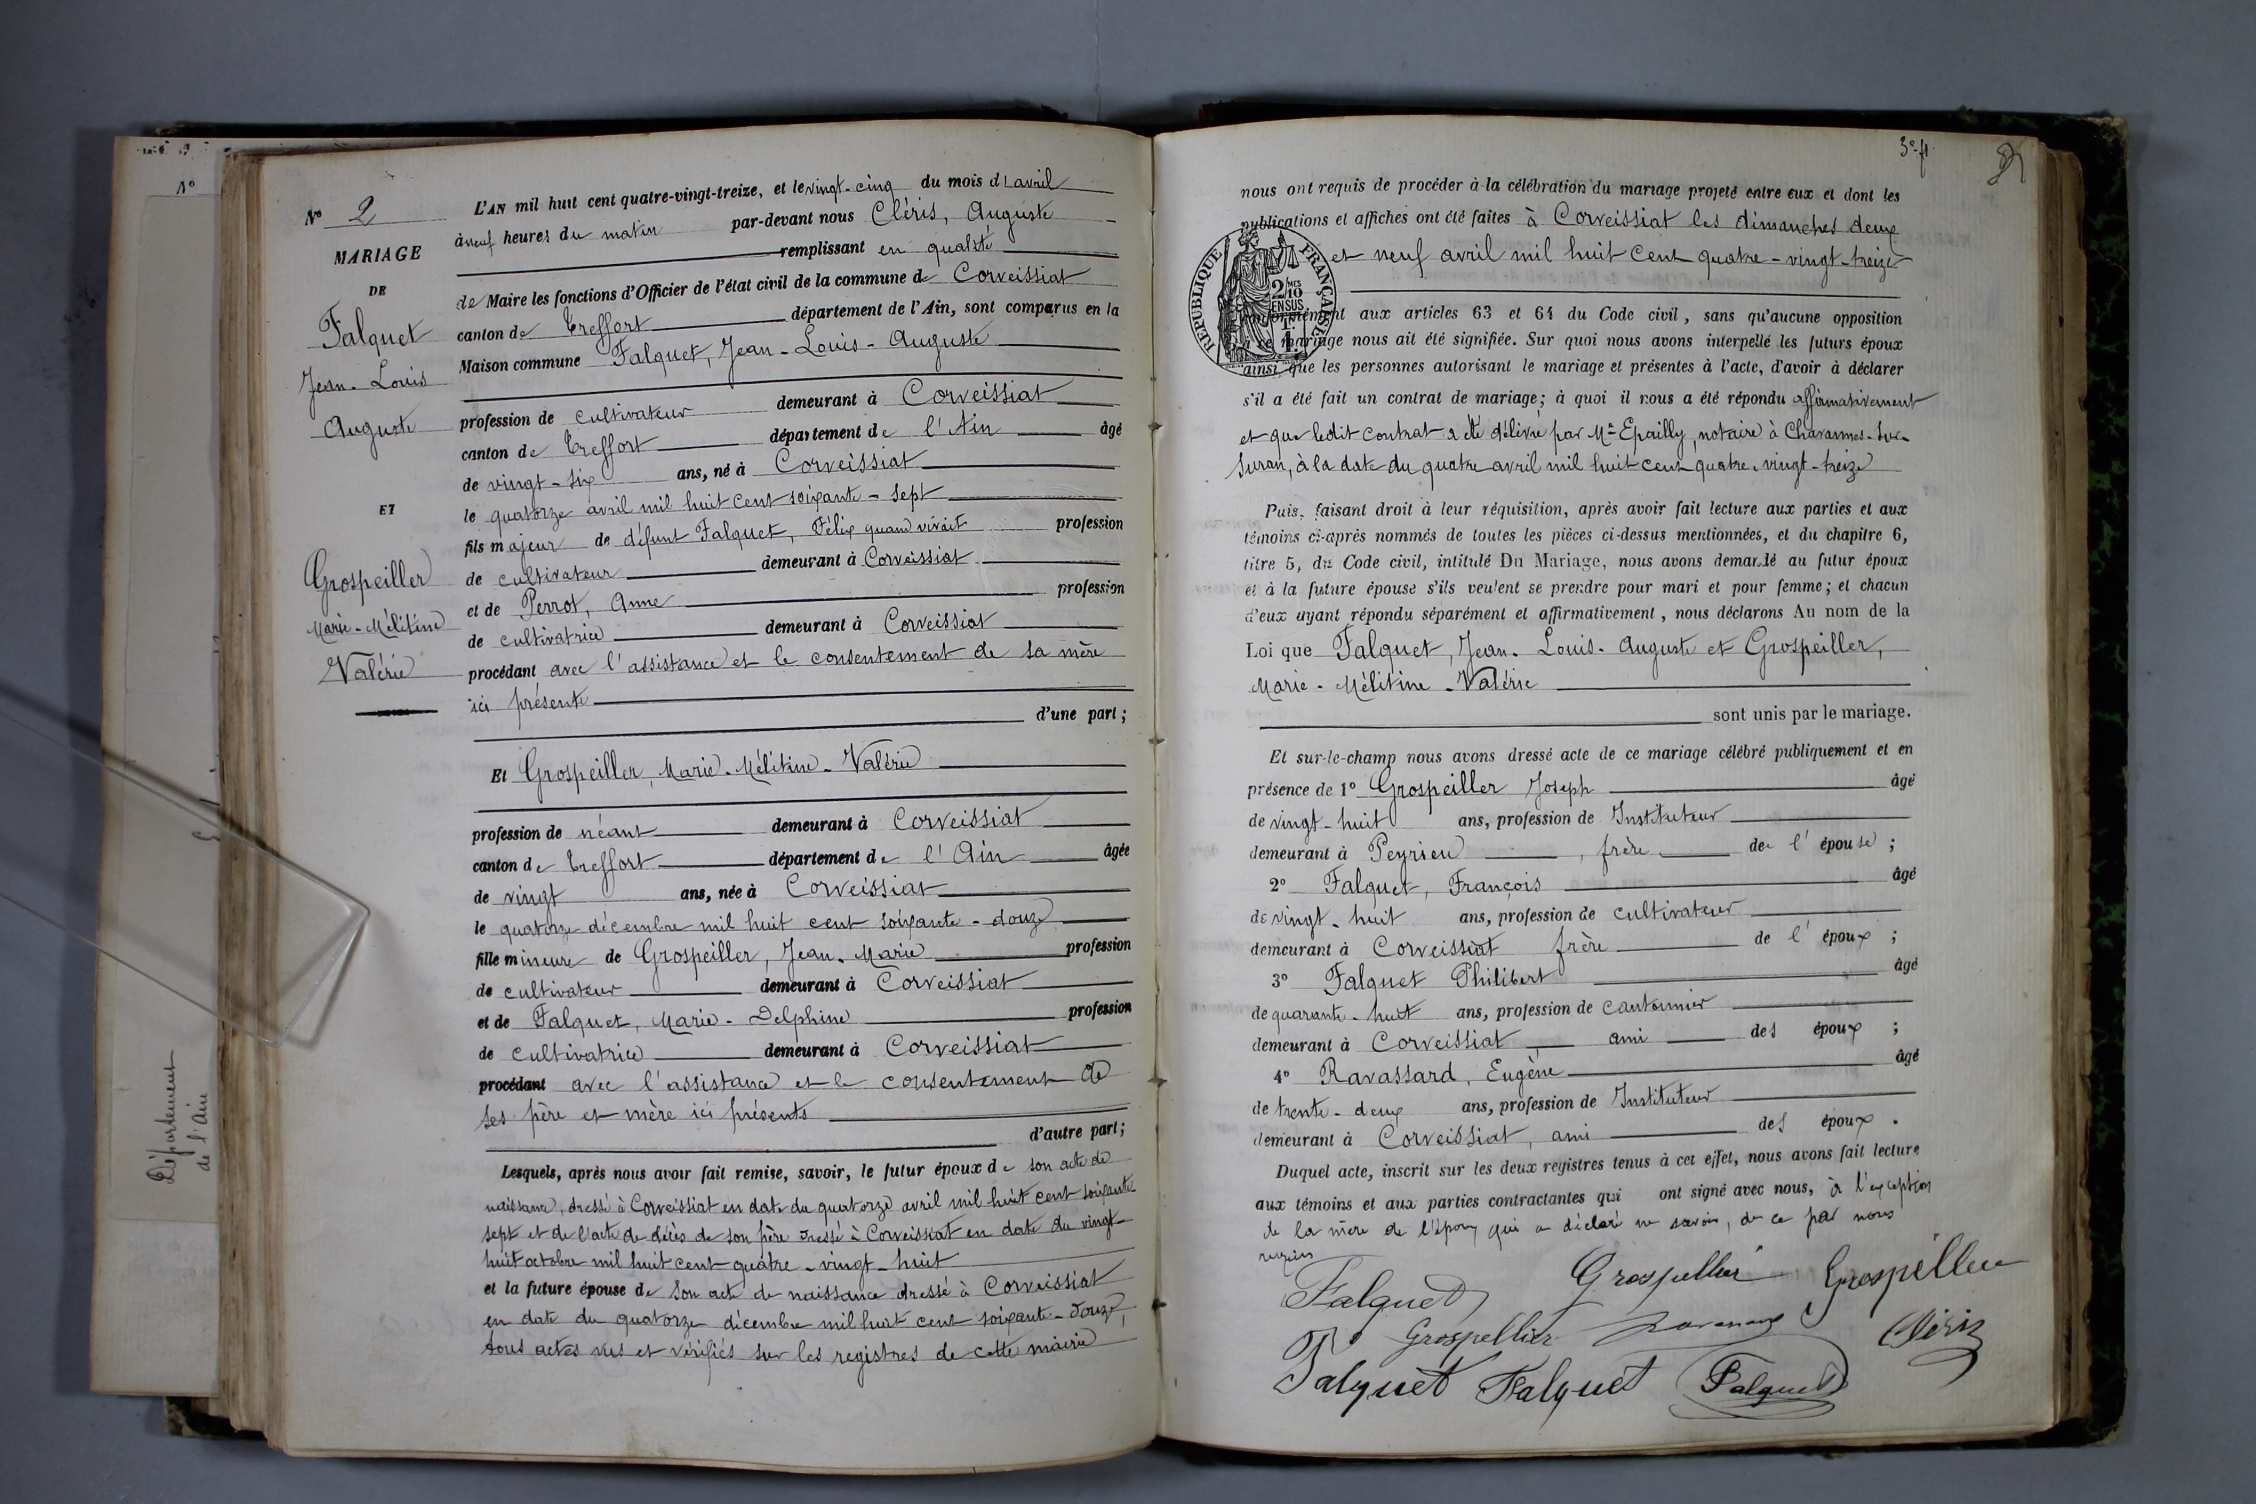 N° 2
MARIAGE
DE
Falquet
Jean-Louis
Auguste
ET
Grospeiller
Marie-Mélitine
Valérie
L'AN mil huit cent quatre-vingt-treize, et le vingt-cinq du mois d'avril
à neuf heures du matin par-devant nous Cléris, Auguste
remplissant en qualité
de Maire les fonctions d'Officier de l'état civil de la commune de Corveissiat
canton de Treffort département de l'Ain, sont comparus en la
Maison commune Falquet, Jean-Louis-Auguste
profession de cultivateur demeurant à Corveissiat
canton de Treffort département de l'Ain âgé
de vingt-six ans, né à Corveissiat
le quatorze avril mil huit cent soixante-sept
fils majeur de défunt Falquet, Félix quand vivait profession
de cultivateur demeurant à Corveissiat
et de Perrot, Anne profession
de cultivatrice demeurant à Corveissiat
procédant avec l'assistance et le consentement de sa mère
ici présente
d'une part;
Et Grospeiller, Marie-Mélitine-Valérie
profession de néant demeurant à Corveissiat
canton de Treffort département de l'Ain âgée
de vingt ans, née à Corveissiat
le quatorze décembre mil huit cent soixante-douze
fille mineure de Grospeiller, Jean-Marie profession
de cultivateur demeurant à Corveissiat
et de Falquet, Marie-Delphine profession
de cultivatrice demeurant à Corveissiat
procédant avec l'assistance et le consentement de
ses père et mère ici présents
d'autre part;
Lesquels, après nous avoir fait remise, savoir, le futur époux de son acte de
naissance, dressé à Corveissiat en date du quatorze avril mil huit cent soixante
sept et de l'acte de décès de son père dressé à Corveissiat en date du vingt-
huit octobre mil huit cent quatre-vingt-huit
et la future épouse de son acte de naissance dressé à Corveissiat
en date du quatorze décembre mil huit cent soixante-douze,
tous actes vus et vérifiés sur les registres de cette mairie
Département
de l'Ain
N°
3e ft
nous ont requis de procéder à la célébration du mariage projeté entre eux et dont les
publications et affiches ont été faites à Corveissiat les dimanches deux
et neuf avril mil huit cent quatre-vingt-treize
RÉPUBLIQUE FRANÇAISE
2/10 EN SUS
conformément aux articles 63 et 64 du Code civil, sans qu'aucune opposition
à ce mariage nous ait été signifiée. Sur quoi nous avons interpellé les futurs époux
ainsi que les personnes autorisant le mariage et présentes à l'acte, d'avoir à déclarer
s'il a été fait un contrat de mariage; à quoi il nous a été répondu affirmativement
et que ledit contrat a été délivré par Me Epailly, notaire à Chavannes-sur-
Suran, à la date du quatre avril mil huit cent quatre-vingt-treize
Puis, faisant droit à leur réquisition, après avoir fait lecture aux parties et aux
témoins ci-après nommés de toutes les pièces ci-dessus mentionnées, et du chapitre 6,
titre 5, du Code civil, intitulé Du Mariage, nous avons demandé au futur époux
et à la future épouse s'ils veulent se prendre pour mari et pour femme; et chacun
d'eux ayant répondu séparément et affirmativement, nous déclarons Au nom de la
Loi que Falquet, Jean-Louis-Auguste et Grospeiller,
Marie-Mélitine-Valérie
sont unis par le mariage.
Et sur-le-champ nous avons dressé acte de ce mariage célébré publiquement et en
présence de 1° Grospeiller Joseph âgé
de vingt-huit ans, profession de Instituteur
demeurant à Peyrieu, frère de l'épouse;
2° Falquet, François âgé
de vingt-huit ans, profession de cultivateur
demeurant à Corveissiat frère de l'époux;
3° Falquet Philibert âgé
de quarante-huit ans, profession de cantonnier
demeurant à Corveissiat ami des époux;
4° Ravassard, Eugène âgé
de trente-deux ans, profession de Instituteur
demeurant à Corveissiat, ami des époux.
Duquel acte, inscrit sur les deux registres tenus à cet effet, nous avons fait lecture
aux témoins et aux parties contractantes qui ont signé avec nous, à l'exception
de la mère de l'époux qui a déclaré ne savoir, de ce par nous
requise
Falquet Grospellier Grospiller
Grospellier Cléris
Falquet Falquet Falquet